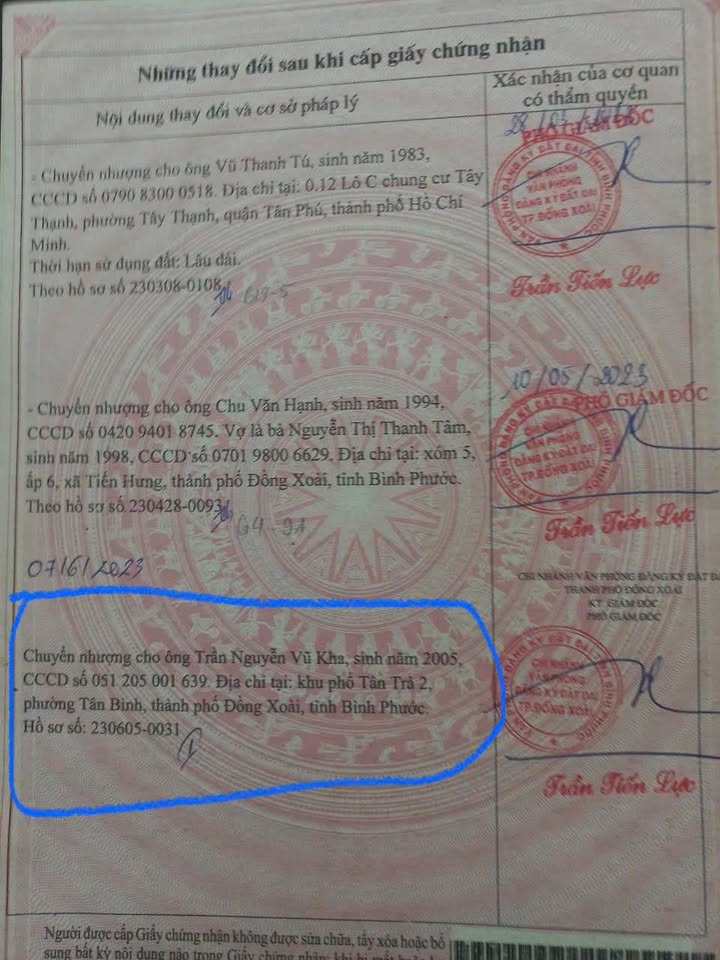 Những thay đổi sau khi cấp giấy chứng nhận
Nội dung thay đổi và cơ sở pháp lý
Xác nhận của cơ quan
có thẩm quyền
- Chuyển nhượng cho ông Vũ Thanh Tú, sinh năm 1983,
CCCD số 0790 8300 0518. Địa chỉ tại: 0.12 Lô C chung cư Tây
Thạnh, phường Tây Thạnh, quận Tân Phú, thành phố Hồ Chí
Minh.
Thời hạn sử dụng đất: Lâu dài.
Theo hồ sơ số 230308-0108
28/03/
PHÓ GIÁM ĐỐC
VĂN PHÒNG ĐĂNG KÝ ĐẤT ĐAI TỈNH BÌNH PHƯỚC
CHI NHÁNH
VĂN PHÒNG
ĐĂNG KÝ ĐẤT ĐAI
TP.ĐỒNG XOÀI
Trần Tiến Lực
- Chuyển nhượng cho ông Chu Văn Hạnh, sinh năm 1994,
CCCD số 0420 9401 8745. Vợ là bà Nguyễn Thị Thanh Tâm,
sinh năm 1998, CCCD số 0701 9800 6629. Địa chỉ tại: xóm 5,
ấp 6, xã Tiến Hưng, thành phố Đồng Xoài, tỉnh Bình Phước.
Theo hồ sơ số 230428-0093
10/05/2023
PHÓ GIÁM ĐỐC
CHI NHÁNH
VĂN PHÒNG
ĐĂNG KÝ ĐẤT ĐAI
TP.ĐỒNG XOÀI
Trần Tiến Lực
07/6/2023
Chuyển nhượng cho ông Trần Nguyễn Vũ Kha, sinh năm 2005,
CCCD số 051 205 001 639. Địa chỉ tại: khu phố Tân Trà 2,
phường Tân Bình, thành phố Đồng Xoài, tỉnh Bình Phước.
Hồ sơ số: 230605-0031
CHI NHÁNH VĂN PHÒNG ĐĂNG KÝ ĐẤT Đ
THÀNH PHỐ ĐỒNG XOÀI
KT. GIÁM ĐỐC
PHÓ GIÁM ĐỐC
CHI NHÁNH
VĂN PHÒNG
ĐĂNG KÝ ĐẤT ĐAI
TP.ĐỒNG XOÀI
Trần Tiến Lực
Người được cấp Giấy chứng nhận không được sửa chữa, tẩy xóa hoặc bổ
sung bất kỳ nội dung nào trong Giấy chứng nhận;